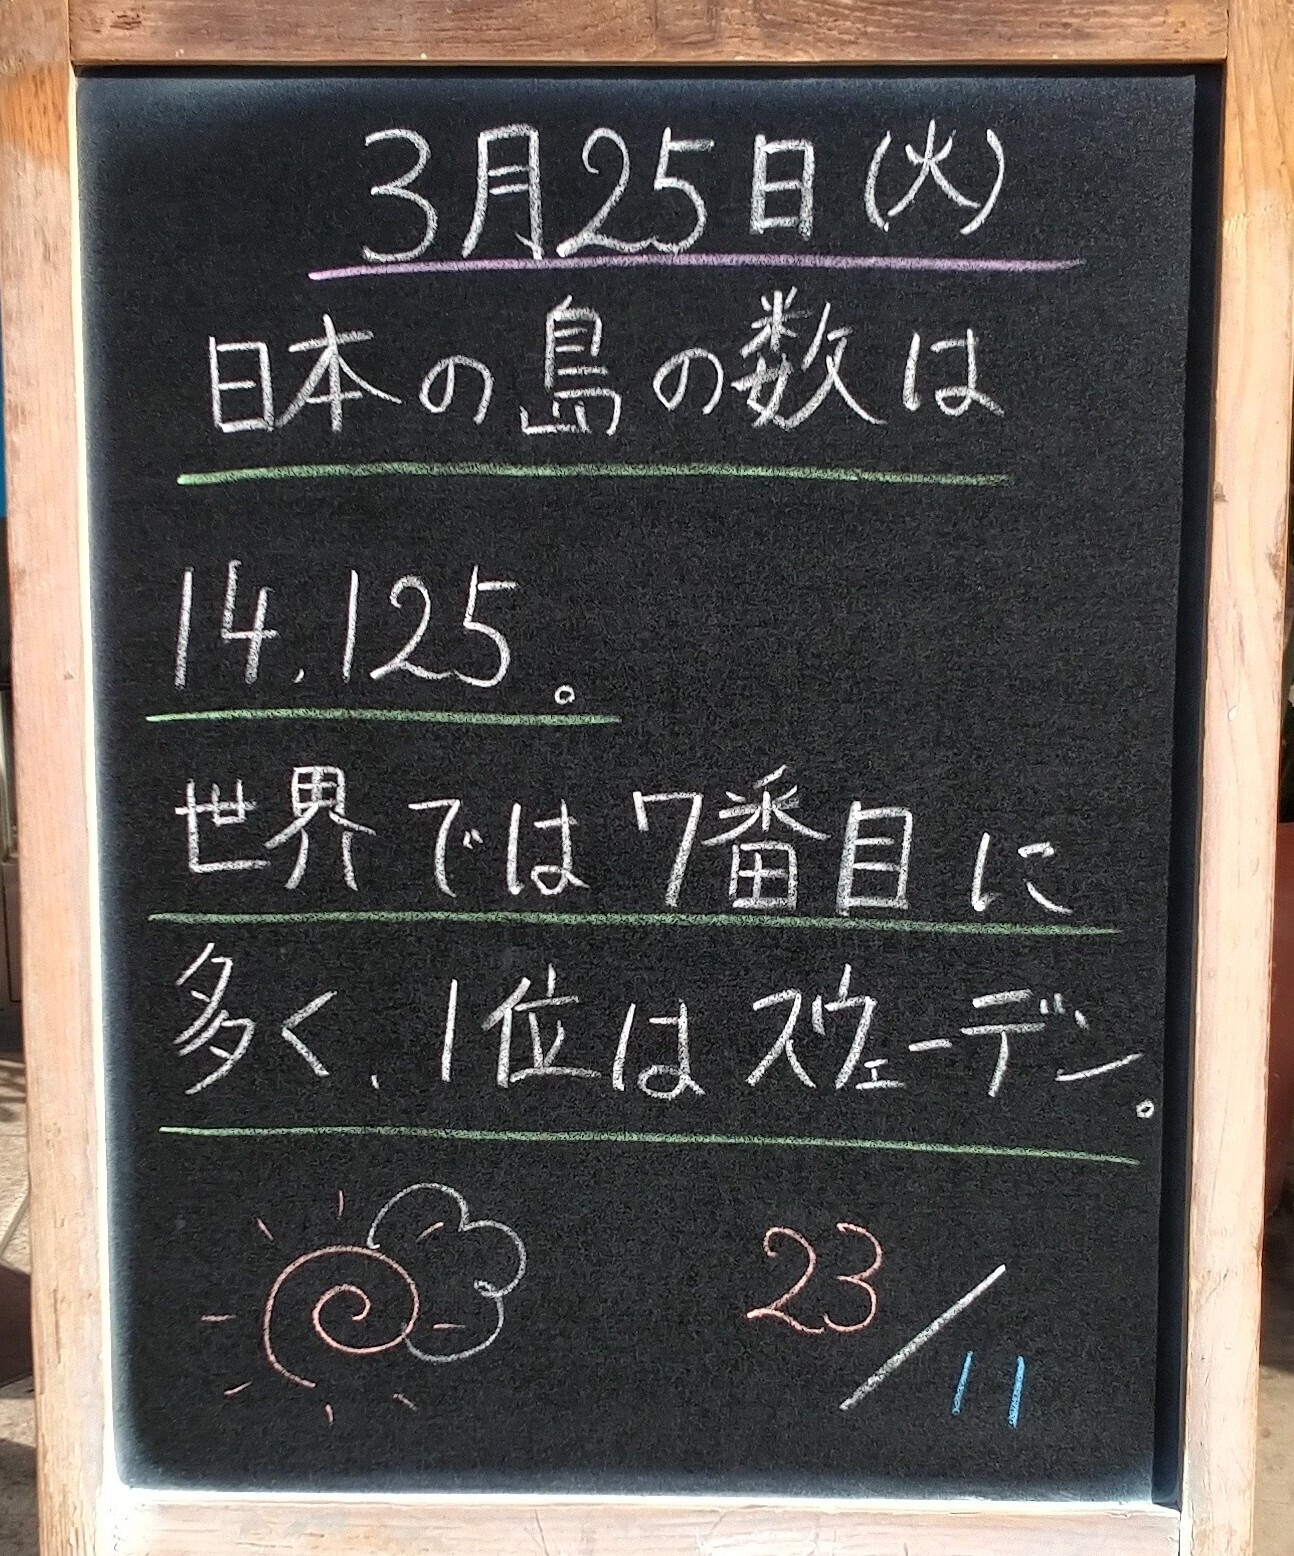 3月25日(火)
日本の島の数は
14,125。
世界では7番目に
多く、1位はスウェーデン。
23/11